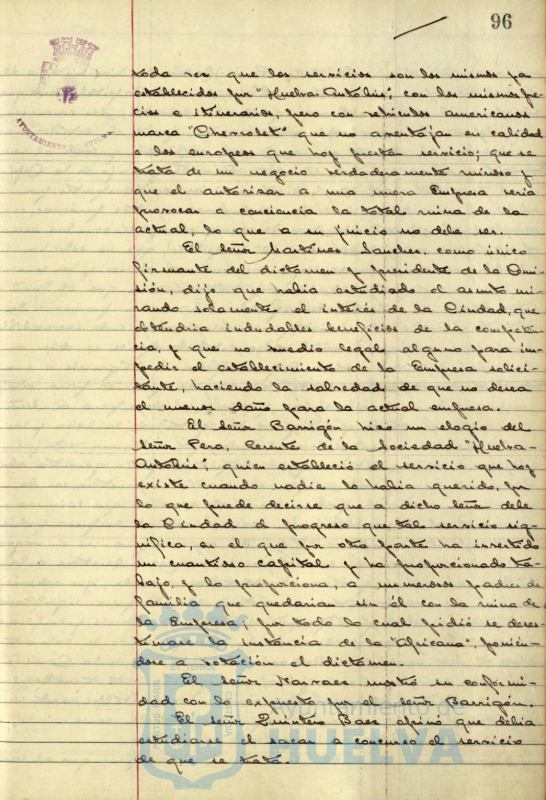 96
AYUNTAMIENTO DE HUELVA
toda vez que los servicios son los mismos ya
establecidos por "Huelva-Autobús", con los mismos pre-
cios e itinerarios, pero con vehículos americanos
marca "Chevrolet" que no aventajan en calidad
a los europeos que hoy prestan servicio; que se
trata de un negocio verdaderamente ruinoso y
que el autorizar a una nueva Empresa sería
provocar a conciencia la total ruina de la
actual, lo que a su juicio no debe ser.
El señor Martínez Sanchez, como único
firmante del dictamen y presidente de la Comi-
sión, dijo que había estudiado el asunto mi-
rando solamente el interés de la Ciudad, que
obtendría indudables beneficios de la competen-
cia, y que no medio legal alguno para im-
pedir el establecimiento de la Empresa solici-
tante, haciendo la salvedad de que no desea
el menor daño para la actual empresa.
El señor Barrigón hizo un elogio del
señor Pera, Gerente de la Sociedad "Huelva-
Autobús", quien estableció el servicio que hoy
existe cuando nadie lo había querido, por
lo que puede decirse que a dicho señor debe
la Ciudad el progreso que tal servicio sig-
nifica, en el que por otra parte ha invertido
un cuantioso capital y ha proporcionado tra-
bajo, y lo proporciona, a numerosos padres de
familia que quedarían sin él con la ruina de
la Empresa; por todo lo cual pidió se deses-
timase la instancia de la "Africana", ponién-
dose a votación el dictamen.
El señor Narvaes mostró su conformi-
dad con lo expuesto por el señor Barrigón.
El señor Quintero Baes opinó que debía
estudiarse el sacar a concurso el servicio
de que se trata.
Ayuntamiento de
HUELVA